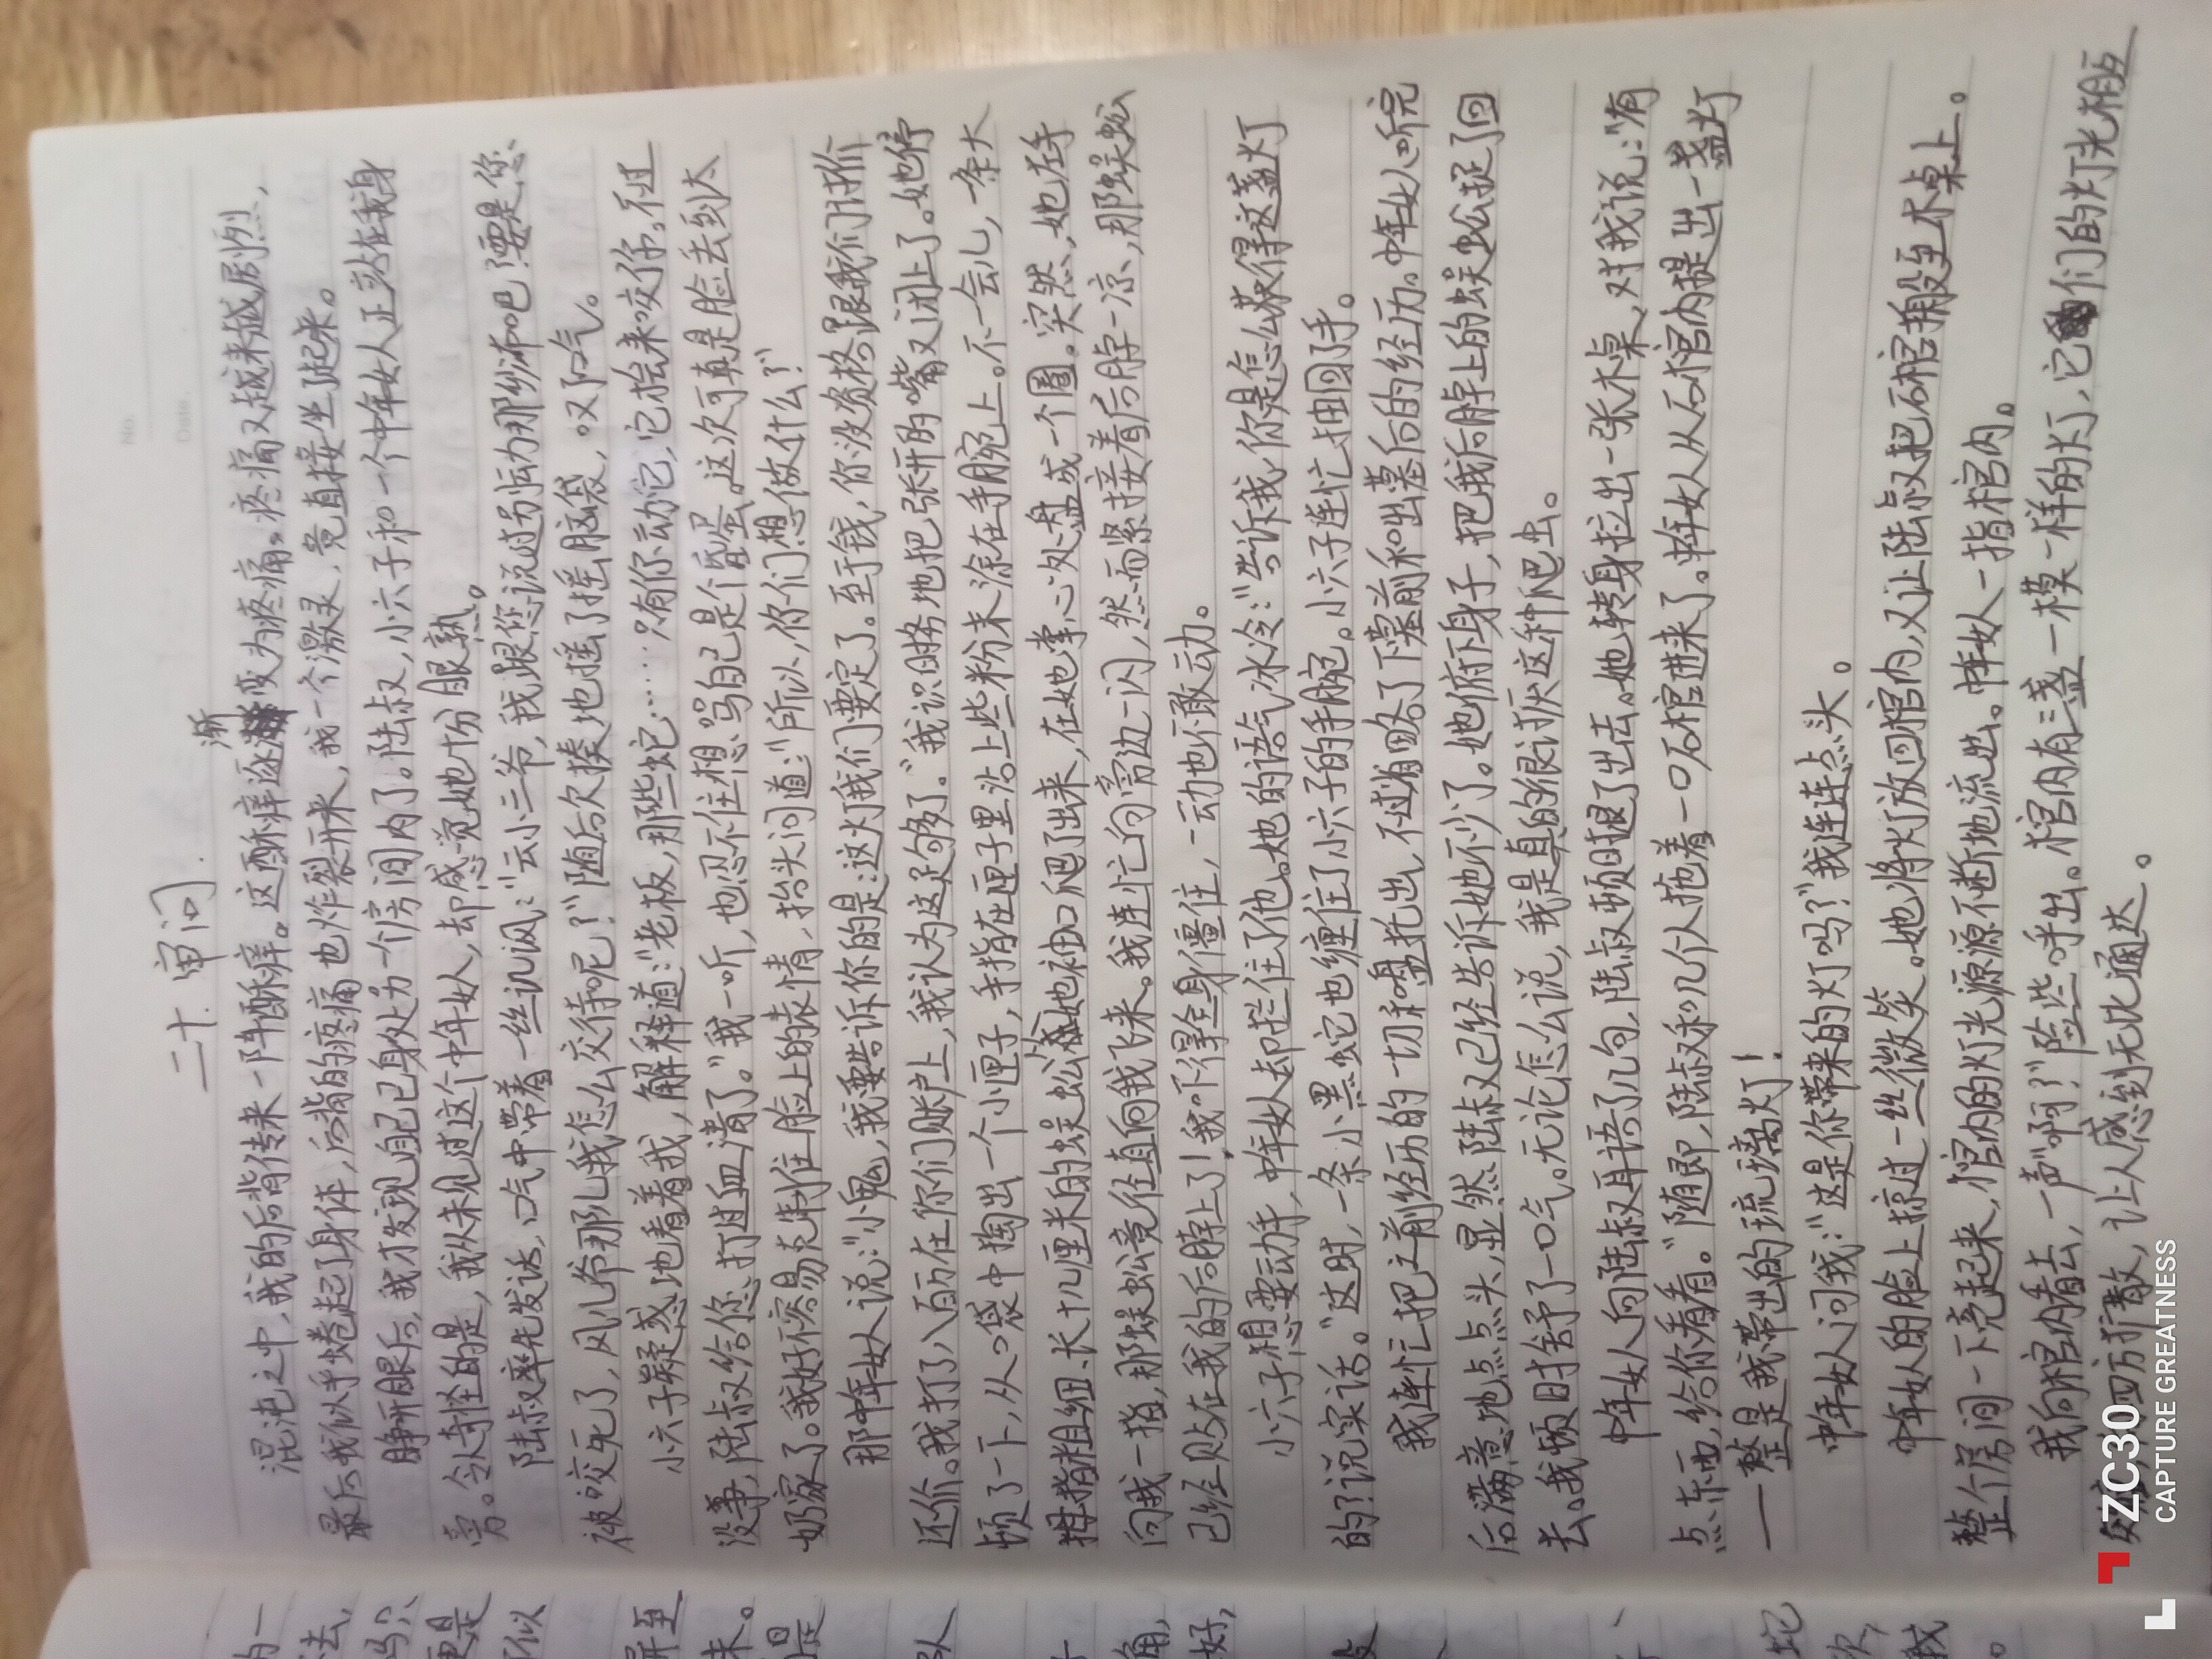 No.
Date.
二十.审问.
混沌之中,我的后背传来一阵酥痒。这酥痒逐渐变为疼痛。疼痛又越来越剧烈,
最后我似乎蜷起了身体,后背的疼痛也炸裂开来,我一个激灵,竟直接坐了起来。
睁开眼后,我才发现自己已身处为一个房间内了。陆叔,小六子和一个中年女人正站在我身
旁。令人奇怪的是,我从未见过这个中年女人,却感觉她十分眼熟。
陆叔率先发话,口气中带着一丝讥讽:“云小三爷,我跟您说过别妄动那纱布吧!要是您
被咬死了,风儿爷那儿我怎么交待呢?”随后欠揍地摇了摇脑袋,叹了口气。
小六子疑惑地看着我,解释道:“老板,那些蛇……只有你动它,它抬来咬你。不过
没事,陆叔给你打过血清了。”我一听,也忍不住想骂自己是个昏蛋。这次可真是脸丢到太
奶家了。我好不容易克制住脸上的表情,抬头问道:“所以,你们想做什么?”
那中年女人说:“小鬼,我要告诉你的是:这灯我们要定了。至于钱,你没资格跟我们讲价
还价。我打了八百万在你们账户上,我认为这足够了。”我识时务地把张开的嘴又闭上了。她停
顿了一下,从口袋中掏出一个小匣子,手指在匣子里沾上些粉末涂在手腕上。不一会儿,一条大
拇指粗细、长十几厘米的蜈蚣从她袖口爬了出来,在她掌心处盘成一个圈。突然,她左手
向我一指,那蜈蚣竟径直向我飞来。我连忙向旁边一闪,然而紧接着后脖一凉,那蜈蚣
已经贴在我的后脖上了!我吓得全身僵住,一动也不敢动。
小六子想要动手,中年女人却拦住了他。她的语气冰冷:“告诉我,你是怎么获得这盏灯
的?说实话。”这时,一条小黑蛇也缠住了小六子的手腕。小六子连忙抽回了手。
我连忙把之前经历的一切和盘托出,不过省略了下墓前和出墓后的经历。中年女人听完
后满意地点点头,显然陆叔已经告诉她不少了。她俯下身子,把我后脖上的蜈蚣捉了回
去。我顿时舒了一口气。无论怎么说,我是真的很讨厌这种爬虫。
中年女人向陆叔耳语了几句,陆叔顿时退了出去。她转身拉出一张木桌,对我说:“有
点东西,给你看看。”随即,陆叔和几个人拖着一口石棺进来了。中年女人从石棺内提出一盏灯
——整是我带出的琉璃灯!
中年女人问我:“这是你带来的灯吗?”我连连点头。
中年女人的脸上掠过一丝微笑。她将灯放回棺内,又让陆叔把石棺搬至木桌上。
整个房间一下亮起来,棺内的灯光源源不断地流出。中年女人一指棺内。
我向棺内看去,一声“啊?”险些呼出。棺内有三盏一模一样的灯,它们的灯光相互
交融,向四方扩散,让人感到无比通达。
ZC30
CAPTURE GREATNESS